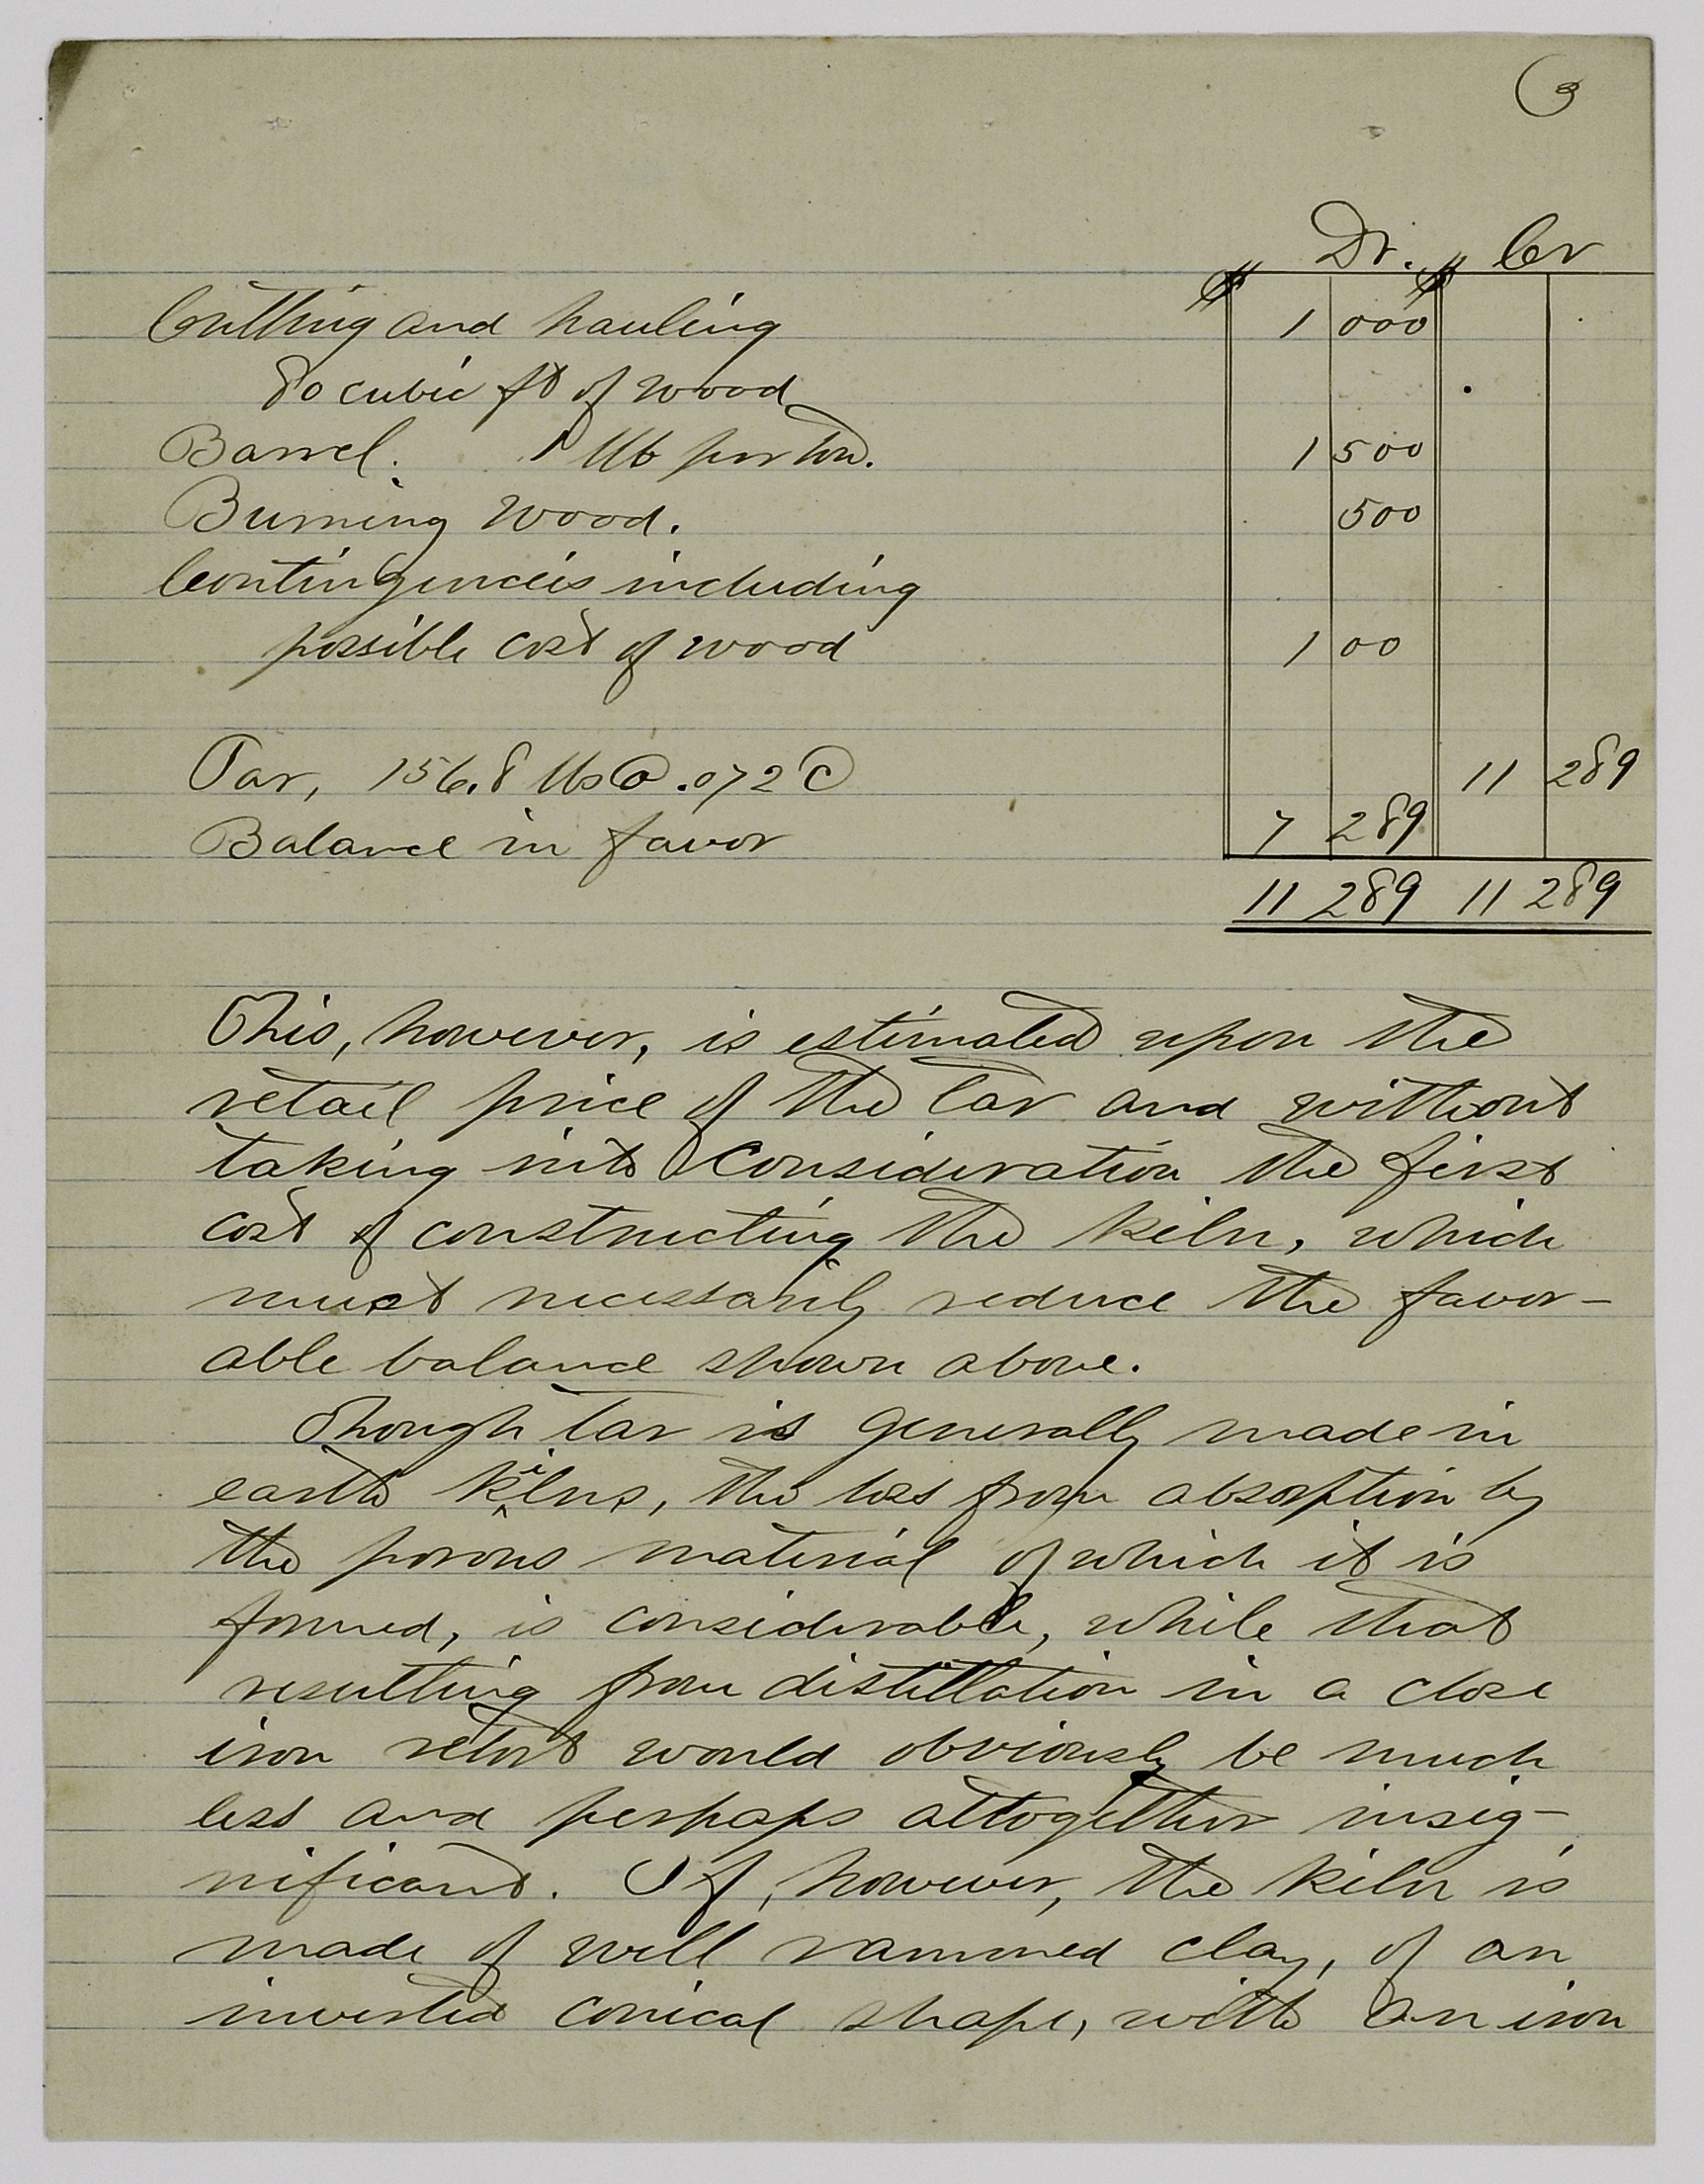 3
Dr. Cr
$ $
Cutting and hauling 1 000
80 cubic ft of wood
Barrel. 1 lb per ton. 1 500
Burning wood. 500
Contingencies including
possible cost of wood 1 00
Tar, 156.8 lbs @ .072 c 11 289
Balance in favor 7 289
11 289 11 289
This, however, is estimated upon the
retail price of the tar and without
taking into consideration the first
cost of constructing the kiln, which
must necessarily reduce the favor-
able balance shown above.
Though tar is generally made in
earth kilns, the loss from absorption by
the porous material of which it is
formed, is considerable, while that
resulting from distillation in a close
iron retort would obviously be much
less and perhaps altogether insig-
nificant. If, however, the kiln is
made of well rammed clay, of an
inverted conical shape, with an iron